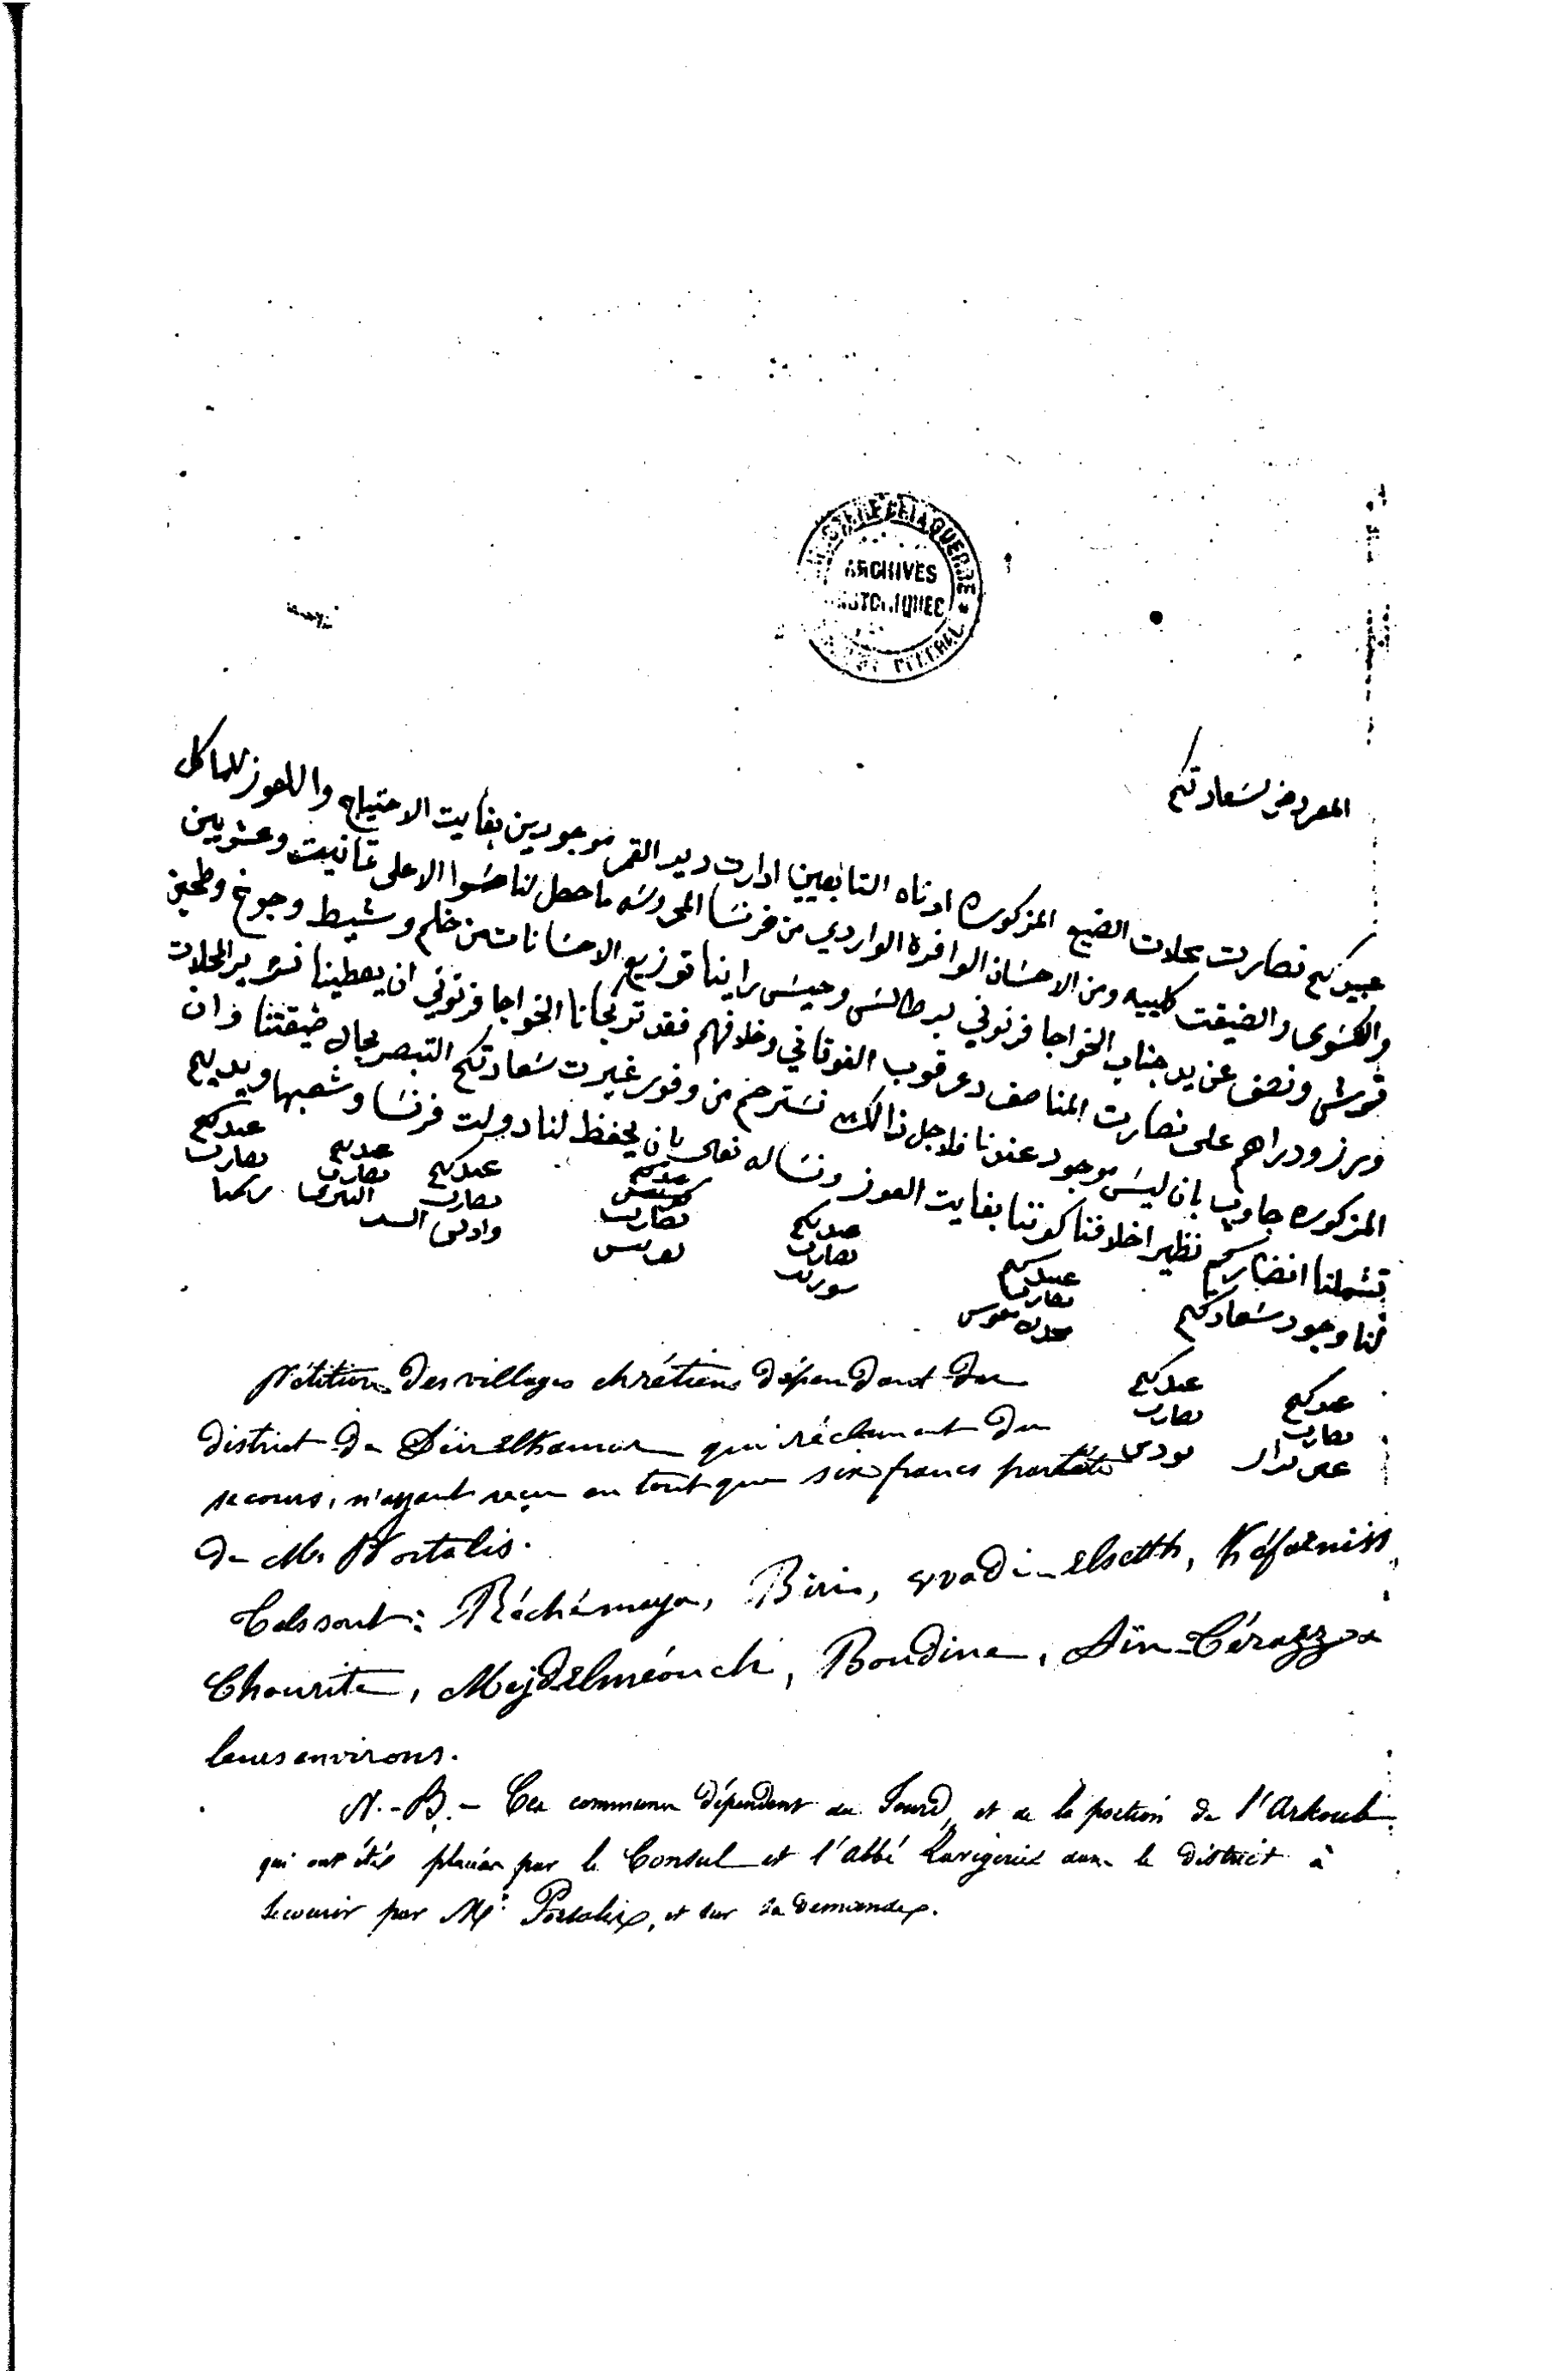 ARCHIVES
المعروض لسعادتكم
عبيدكم نصارت محلات الضيع المذكوره ادناه التابعين ادارت دير القمر موجودين بغايت الاحتياج والعوز للماكل
والكسوى والضيقت كليه ومن الاحسان الوافرة الواردي من فرنسا المحروسه ما حصل لنا سوا الا على ثمانيت وعشرين
قرش ونصف عن يد جناب الخواجا فرنوني برطالس وحيس راينا توزيع الاحسانات من خام وشيط وجوخ وطحين
ورز ودراهم على نصارت المناصف وعرقوب الفوقاني وخلافهم فقد ترجانا الخواجا فرنوني ان يعطينا نظير المحلات
المذكوره جاوب بان ليس موجود عندنا فلاجل ذالك نسترحم من وفور غيرت سعادتكم التبصر بحال ضيقتنا وان
تشملنا انضاركم نظير اخلافنا كوننا بغايت العوز ونساله تعالى بان يحفظ لنا دولت فرنسا وشعبها ويديم
لنا وجود سعادتكم
عبدكم نصارت
عبدكم نصارت
عبدكم نصارت
عبدكم نصارت
نصارت كفرنيس
عبدكم نصارت وادي الست
عبدكم نصارت البيري
عبدكم نصارت رشميا
Pétition des villages chrétiens dépendant du
district de Déir Elkamar qui réclament du
secours, n'ayant reçu en tout que six francs par tête
de Mr Portalis.
Cels sont: Réchémaya, Biri, Wadi-elsetth, Kéfarniss,
Chourite, Mejdelméouch, Boudine, Aïn-Térazz &
leurs environs.
N.-B. - Ces communes dépendent du Jourd, et de la portion de l'Arkoub
qui ont étés placées par le Consul et l'abbé Lavigerie dans le district à
secourir par Mr Portalis, et sur sa demande.